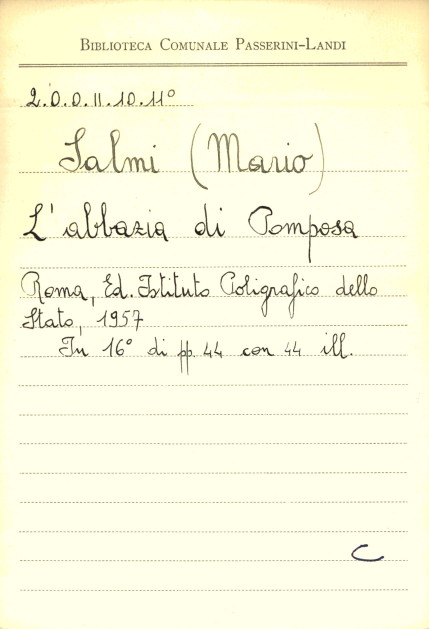 BIBLIOTECA COMUNALE PASSERINI-LANDI
2.0.0.II.10.11°
Salmi (Mario)
L'abbazia di Pomposa
Roma, Ed. Istituto Poligrafico dello
Stato, 1957
In 16° di pp. 44 con 44 ill.
C